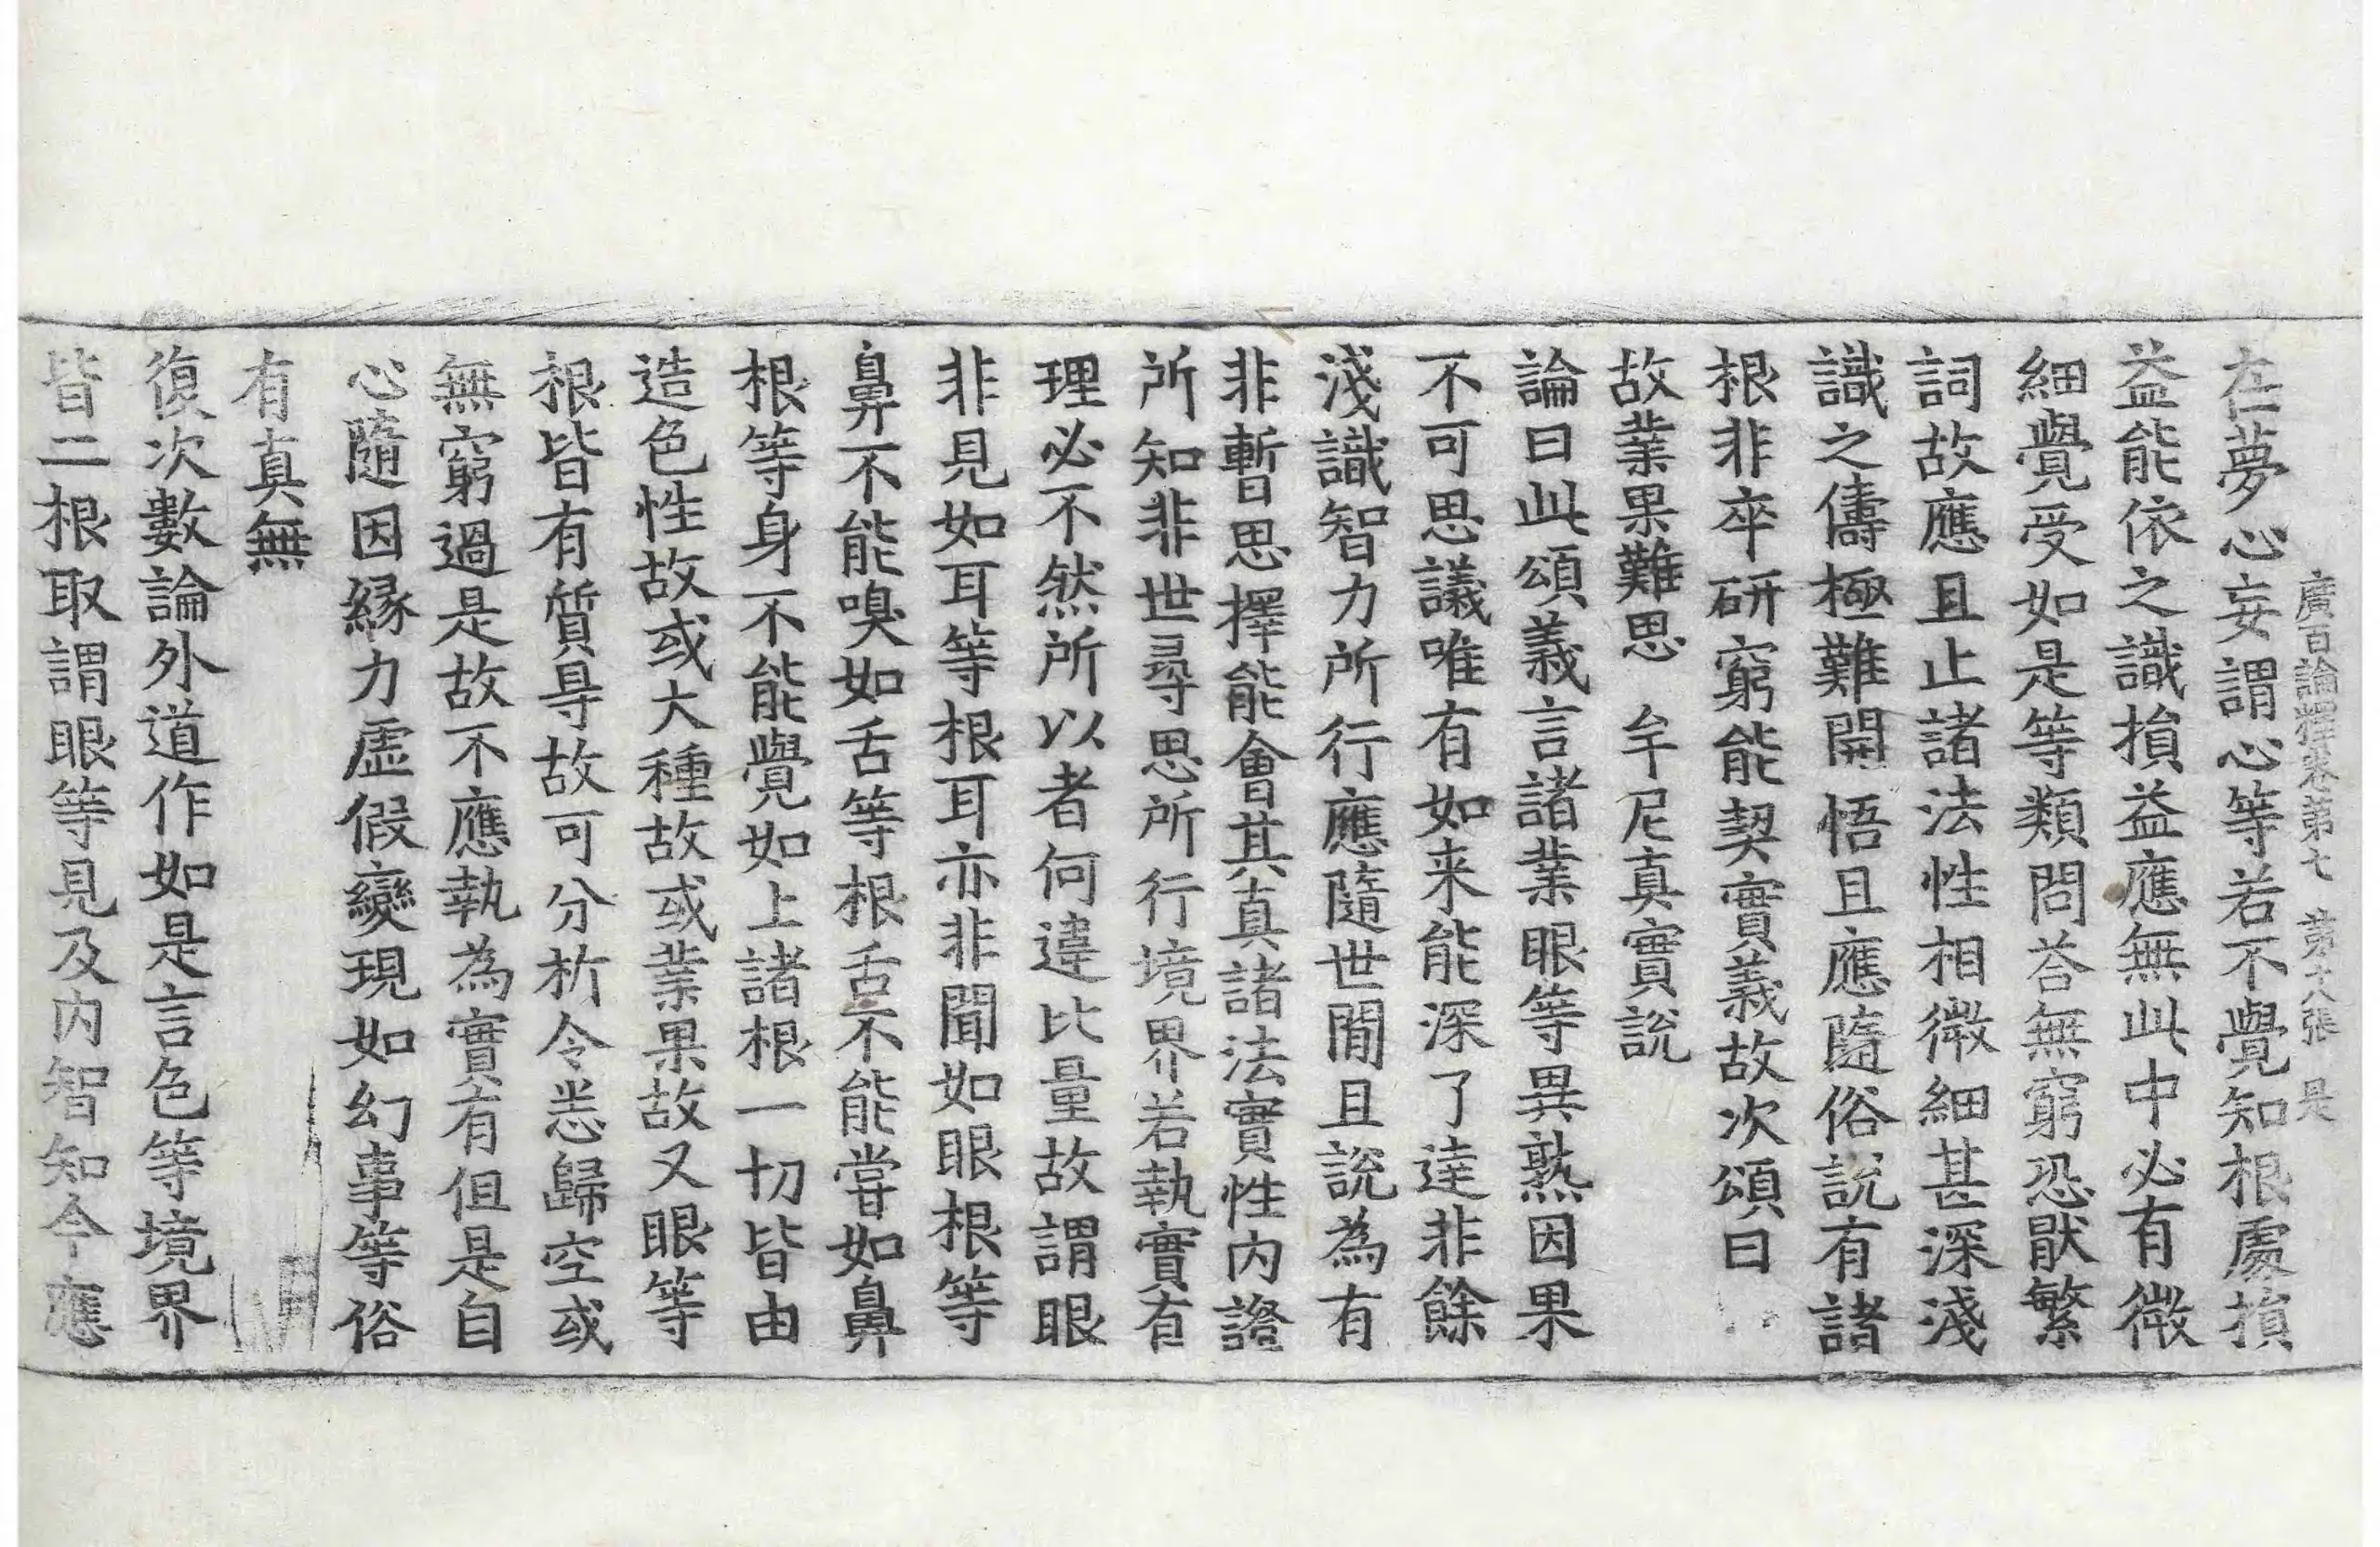 廣百論釋卷第七　第十八張　是
在夢心妄謂心等若不覺知根處損
益能依之識損益應無此中必有微
細覺受如是等類問荅無窮恐猒繁
詞故應且止諸法性相微細甚深淺
識之儔極難開悟且應隨俗說有諸
根非卒研窮能契實義故次頌曰
故業果難思　牟尼真實說
論曰此頌義言諸業眼等異熟因果
不可思議唯有如来能深了達非餘
淺識智力所行應隨世閒且說為有
非暫思擇能會其真諸法實性內證
所知非世尋思所行境界若執實有
理必不然所以者何違比量故謂眼
非見如耳等根耳亦非聞如眼根等
鼻不能嗅如舌等根舌不能嘗如鼻
根等身不能覺如上諸根一切皆由
造色性故或大種故或業果故又眼等
根皆有質㝵故可分析令悉歸空或
無窮過是故不應執為實有但是自
心隨因緣力虛假變現如幻事等俗
有真無
復次數論外道作如是言色等境界
皆二根取謂眼等見及內智知今應